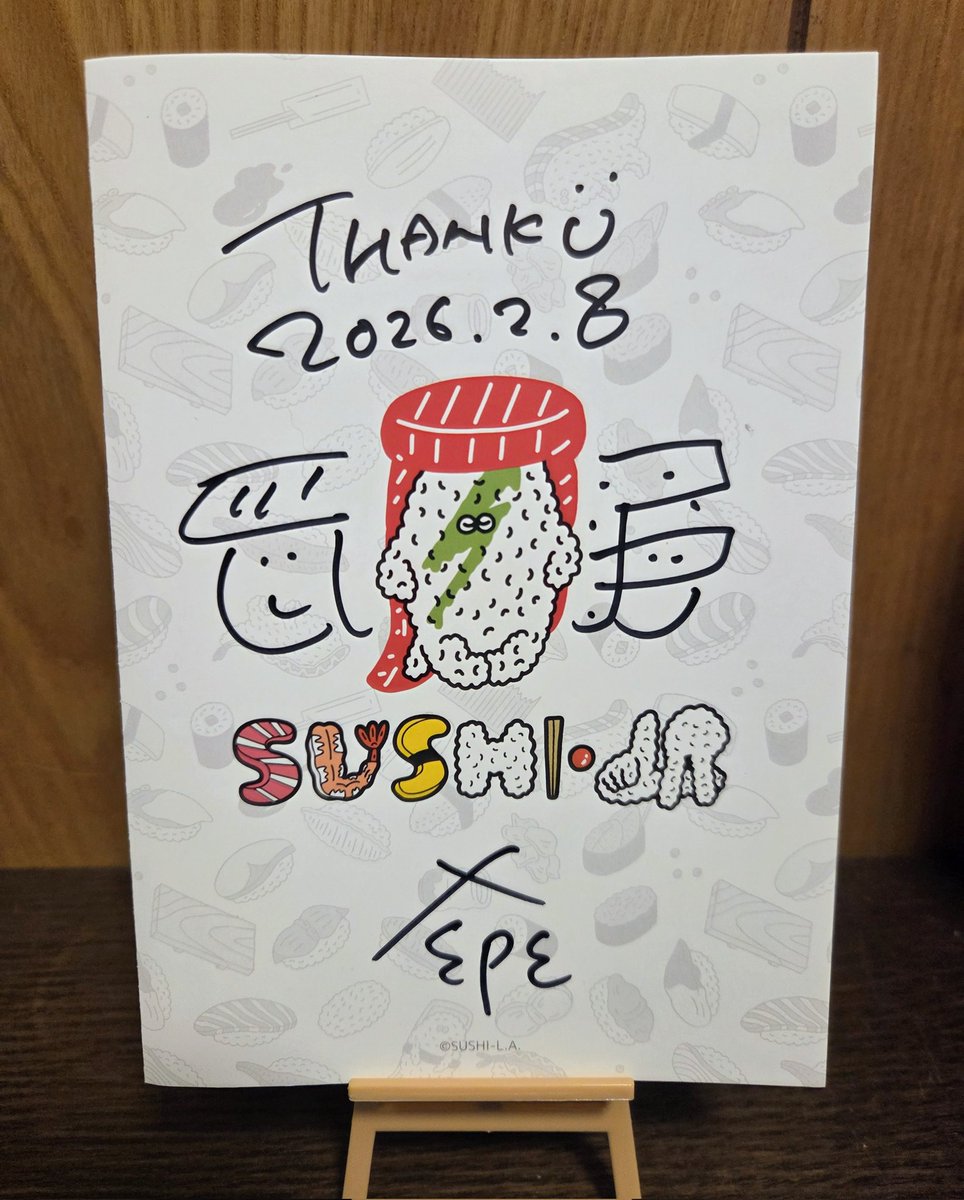 THANK Ü
2026.2.8
SUSHI・JR
XEPE
©SUSHI-L.A.